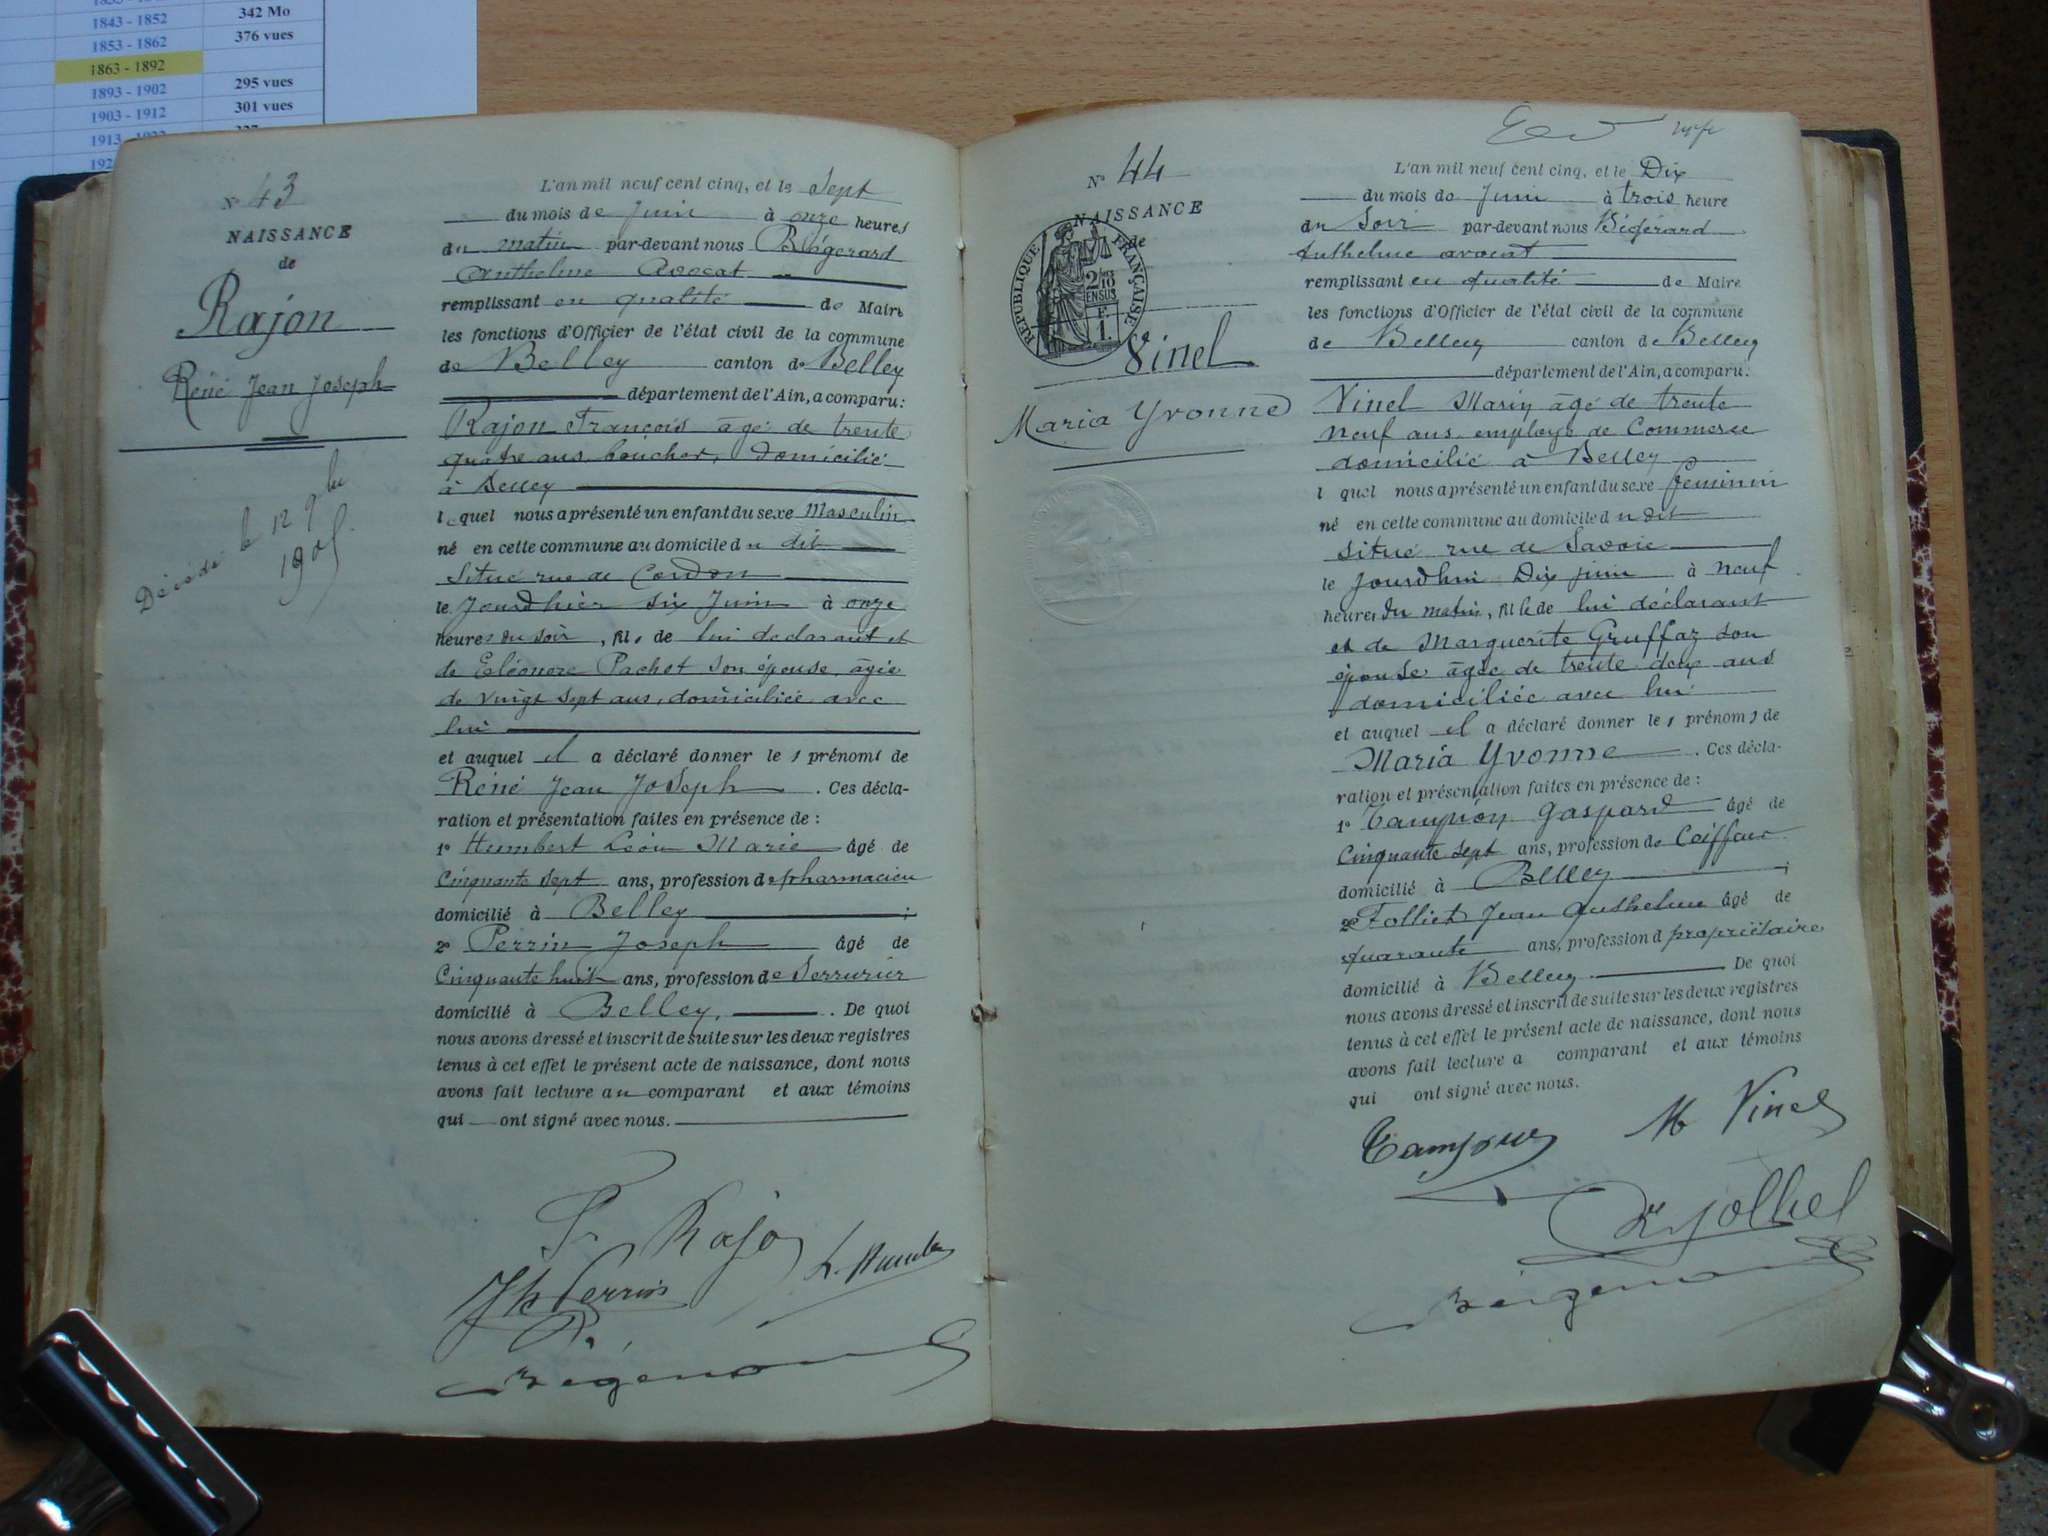 1843 - 1852 342 Mo
1853 - 1862 376 vues
1863 - 1892
1893 - 1902 295 vues
1903 - 1912 301 vues
1913 -
N° 43
NAISSANCE
de
Rajon
Réné Jean Joseph
Décédé le 12 9bre
1905
L'an mil neuf cent cinq, et le Sept
du mois de Juin à onze heures
du matin par-devant nous Bégérard
Anthelme Avocat
remplissant en qualité de Maire
les fonctions d'Officier de l'état civil de la commune
de Belley canton de Belley
département de l'Ain, a comparu:
Rajon François âgé de trente
quatre ans boucher, domicilié
à Belley
lequel nous a présenté un enfant du sexe Masculin
né en cette commune au domicile du dit
Situé rue de Cordon
le Jourdhier six Juin à onze
heures du soir, fils de lui déclarant et
de Eléonore Pachot son épouse, âgée
de vingt sept ans, domiciliée avec
lui
et auquel il a déclaré donner les prénoms de
Réné Jean Joseph . Ces décla-
ration et présentation faites en présence de :
1° Humbert Léon Marie âgé de
Cinquante sept ans, profession de pharmacien
domicilié à Belley ;
2° Perrin Joseph âgé de
Cinquante huit ans, profession de Serrurier
domicilié à Belley. . De quoi
nous avons dressé et inscrit de suite sur les deux registres
tenus à cet effet le présent acte de naissance, dont nous
avons fait lecture au comparant et aux témoins
qui ont signé avec nous.
F. Rajon
Jh Perrin L. Humbert
Bégérard
N° 44
NAISSANCE
de
RÉPUBLIQUE FRANÇAISE
2/10
EN SUS
F.
1.
Vinel
Maria Yvonne
L'an mil neuf cent cinq, et le Dix
du mois de Juin à trois heure
du Soir par-devant nous Bégérard
Anthelme avocat
remplissant en qualité de Maire
les fonctions d'Officier de l'état civil de la commune
de Belley canton de Belley
département de l'Ain, a comparu:
Vinel Marin âgé de trente
neuf ans employé de Commerce
domicilié à Belley
l quel nous a présenté un enfant du sexe féminin
né en cette commune au domicile du dit
situé rue de Savoie
le jourdhui Dix juin à neuf
heures du matin, fille de lui déclarant
et de Marguerite Gruffaz son
épouse âgée de trente deux ans
domiciliée avec lui
et auquel il a déclaré donner les prénoms de
Maria Yvonne . Ces décla-
ration et présentation faites en présence de :
1° Tampion Gaspard âgé de
Cinquante sept ans, profession de Coiffeur
domicilié à Belley ;
2° Folliet Jean Anthelme âgé de
quarante ans, profession d propriétaire
domicilié à Belley . De quoi
nous avons dressé et inscrit de suite sur les deux registres
tenus à cet effet le présent acte de naissance, dont nous
avons fait lecture a comparant et aux témoins
qui ont signé avec nous.
M Vinel
Bégérard